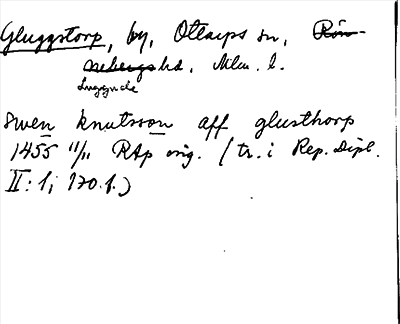 Gluggstorp, by, Ottarps sn, Rön-
nebergs hd, Mlm. l.
Luggude
Swen knutsson aff glusthorp
1455 11/11 RAp orig. (tr. i Rep. Dipl.
II: 1, 170. f.)